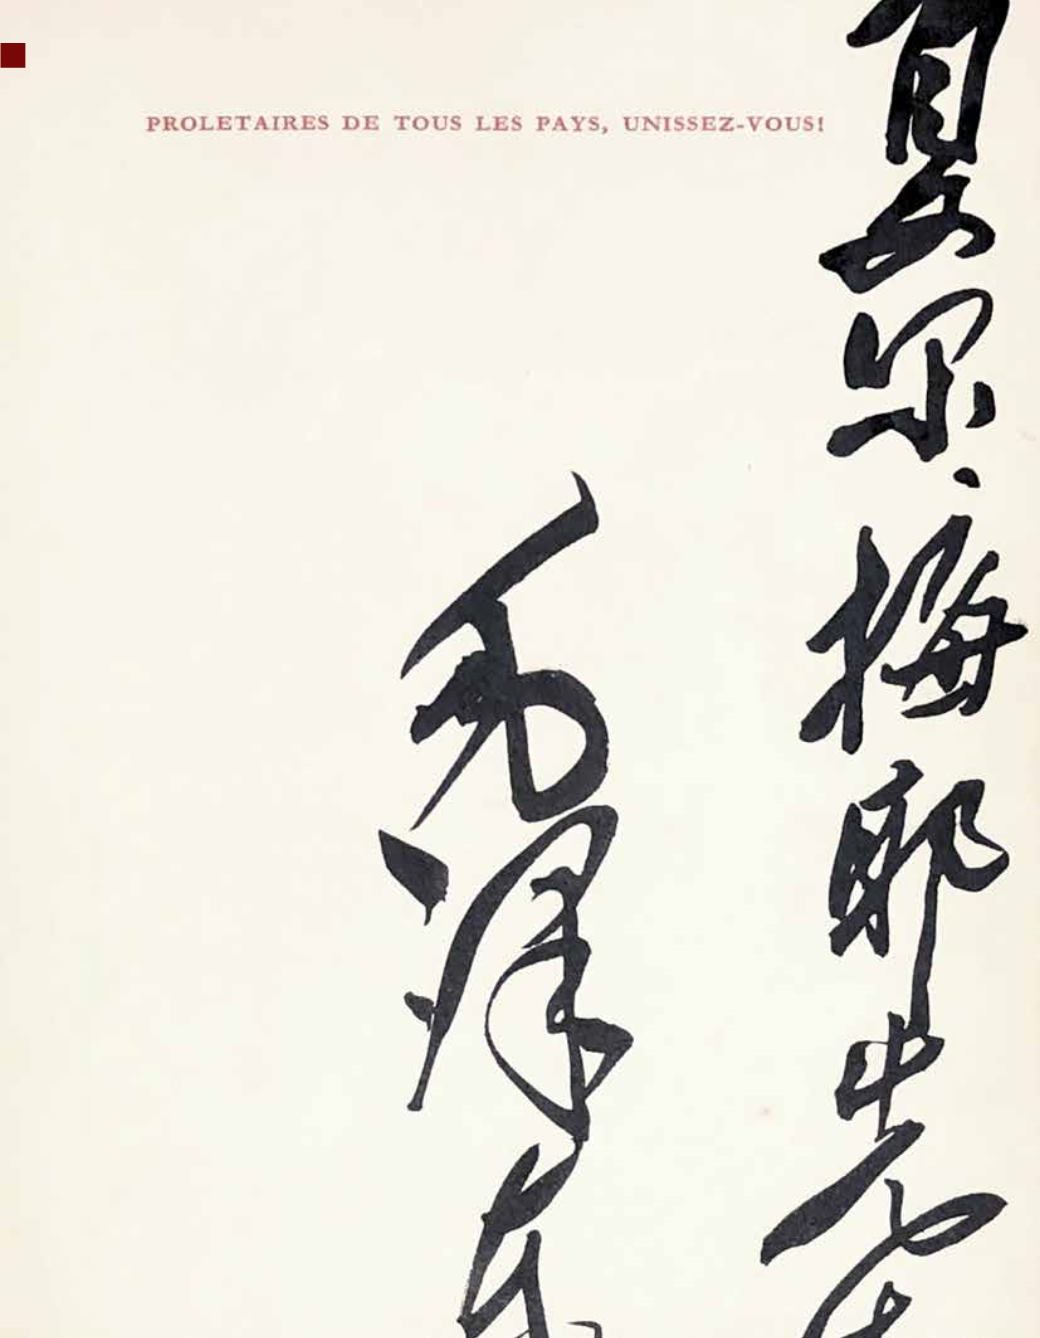 PROLETAIRES DE TOUS LES PAYS, UNISSEZ-VOUS!
夏尔·梅耶先生
毛泽东